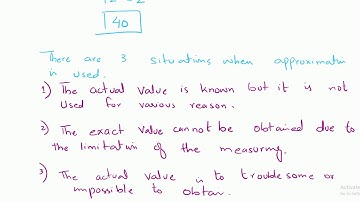 40
There are 3 situations when approximation
is used.
1) The actual value is known but it is not
used for various reason.
2) The exact value cannot be obtained due to
the limitation of the measuring.
3) The actual value is to troublesome or
impossible to obtain.
Activate